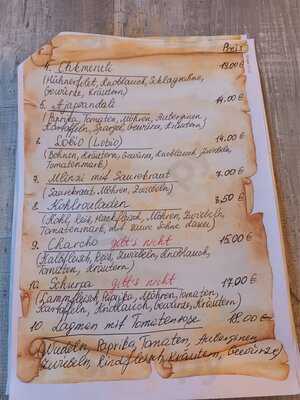 Preis
4. Chkmeruli 19,00 €
(Hühnerfilet, Knoblauch, Schlagsahne,
Gewürze, Kräutern)
5. Ajapsandali 14,00 €
(Paprika, Tomaten, Möhren, Auberginen,
Kartoffeln, Spargel, Gewürze, Kräutern)
6. Lobio (Lobio) 14,00 €
(Bohnen, Kräutern, Gewürze, Knoblauch, Zwiebeln,
Tomatenmark)
7. Mlinzi mit Sauerkraut 7.00 €
(Sauerkraut, Möhren, Zwiebeln)
8. Kohlrouladen 3,50 €
(Kohl, Reis, Hackfleisch, Möhren, Zwiebeln,
Tomatenmark, mit
9. Charcho gibt's nicht 15,00 €
(Kalbfleisch, Reis, Zwiebeln, Knoblauch,
Tomaten, Kräutern)
10. Schurpa gibt's nicht 17,00 €
(Lammfleisch, Paprika, Möhren, Tomaten,
Kartoffeln, Knoblauch, Gewürze, Kräutern)
10. Lagman mit Tomatensose 18.00 €
(Nudeln, Paprika, Tomaten, Auberginen
Zwiebeln, Rindfleisch, Kräutern, Gewürze)